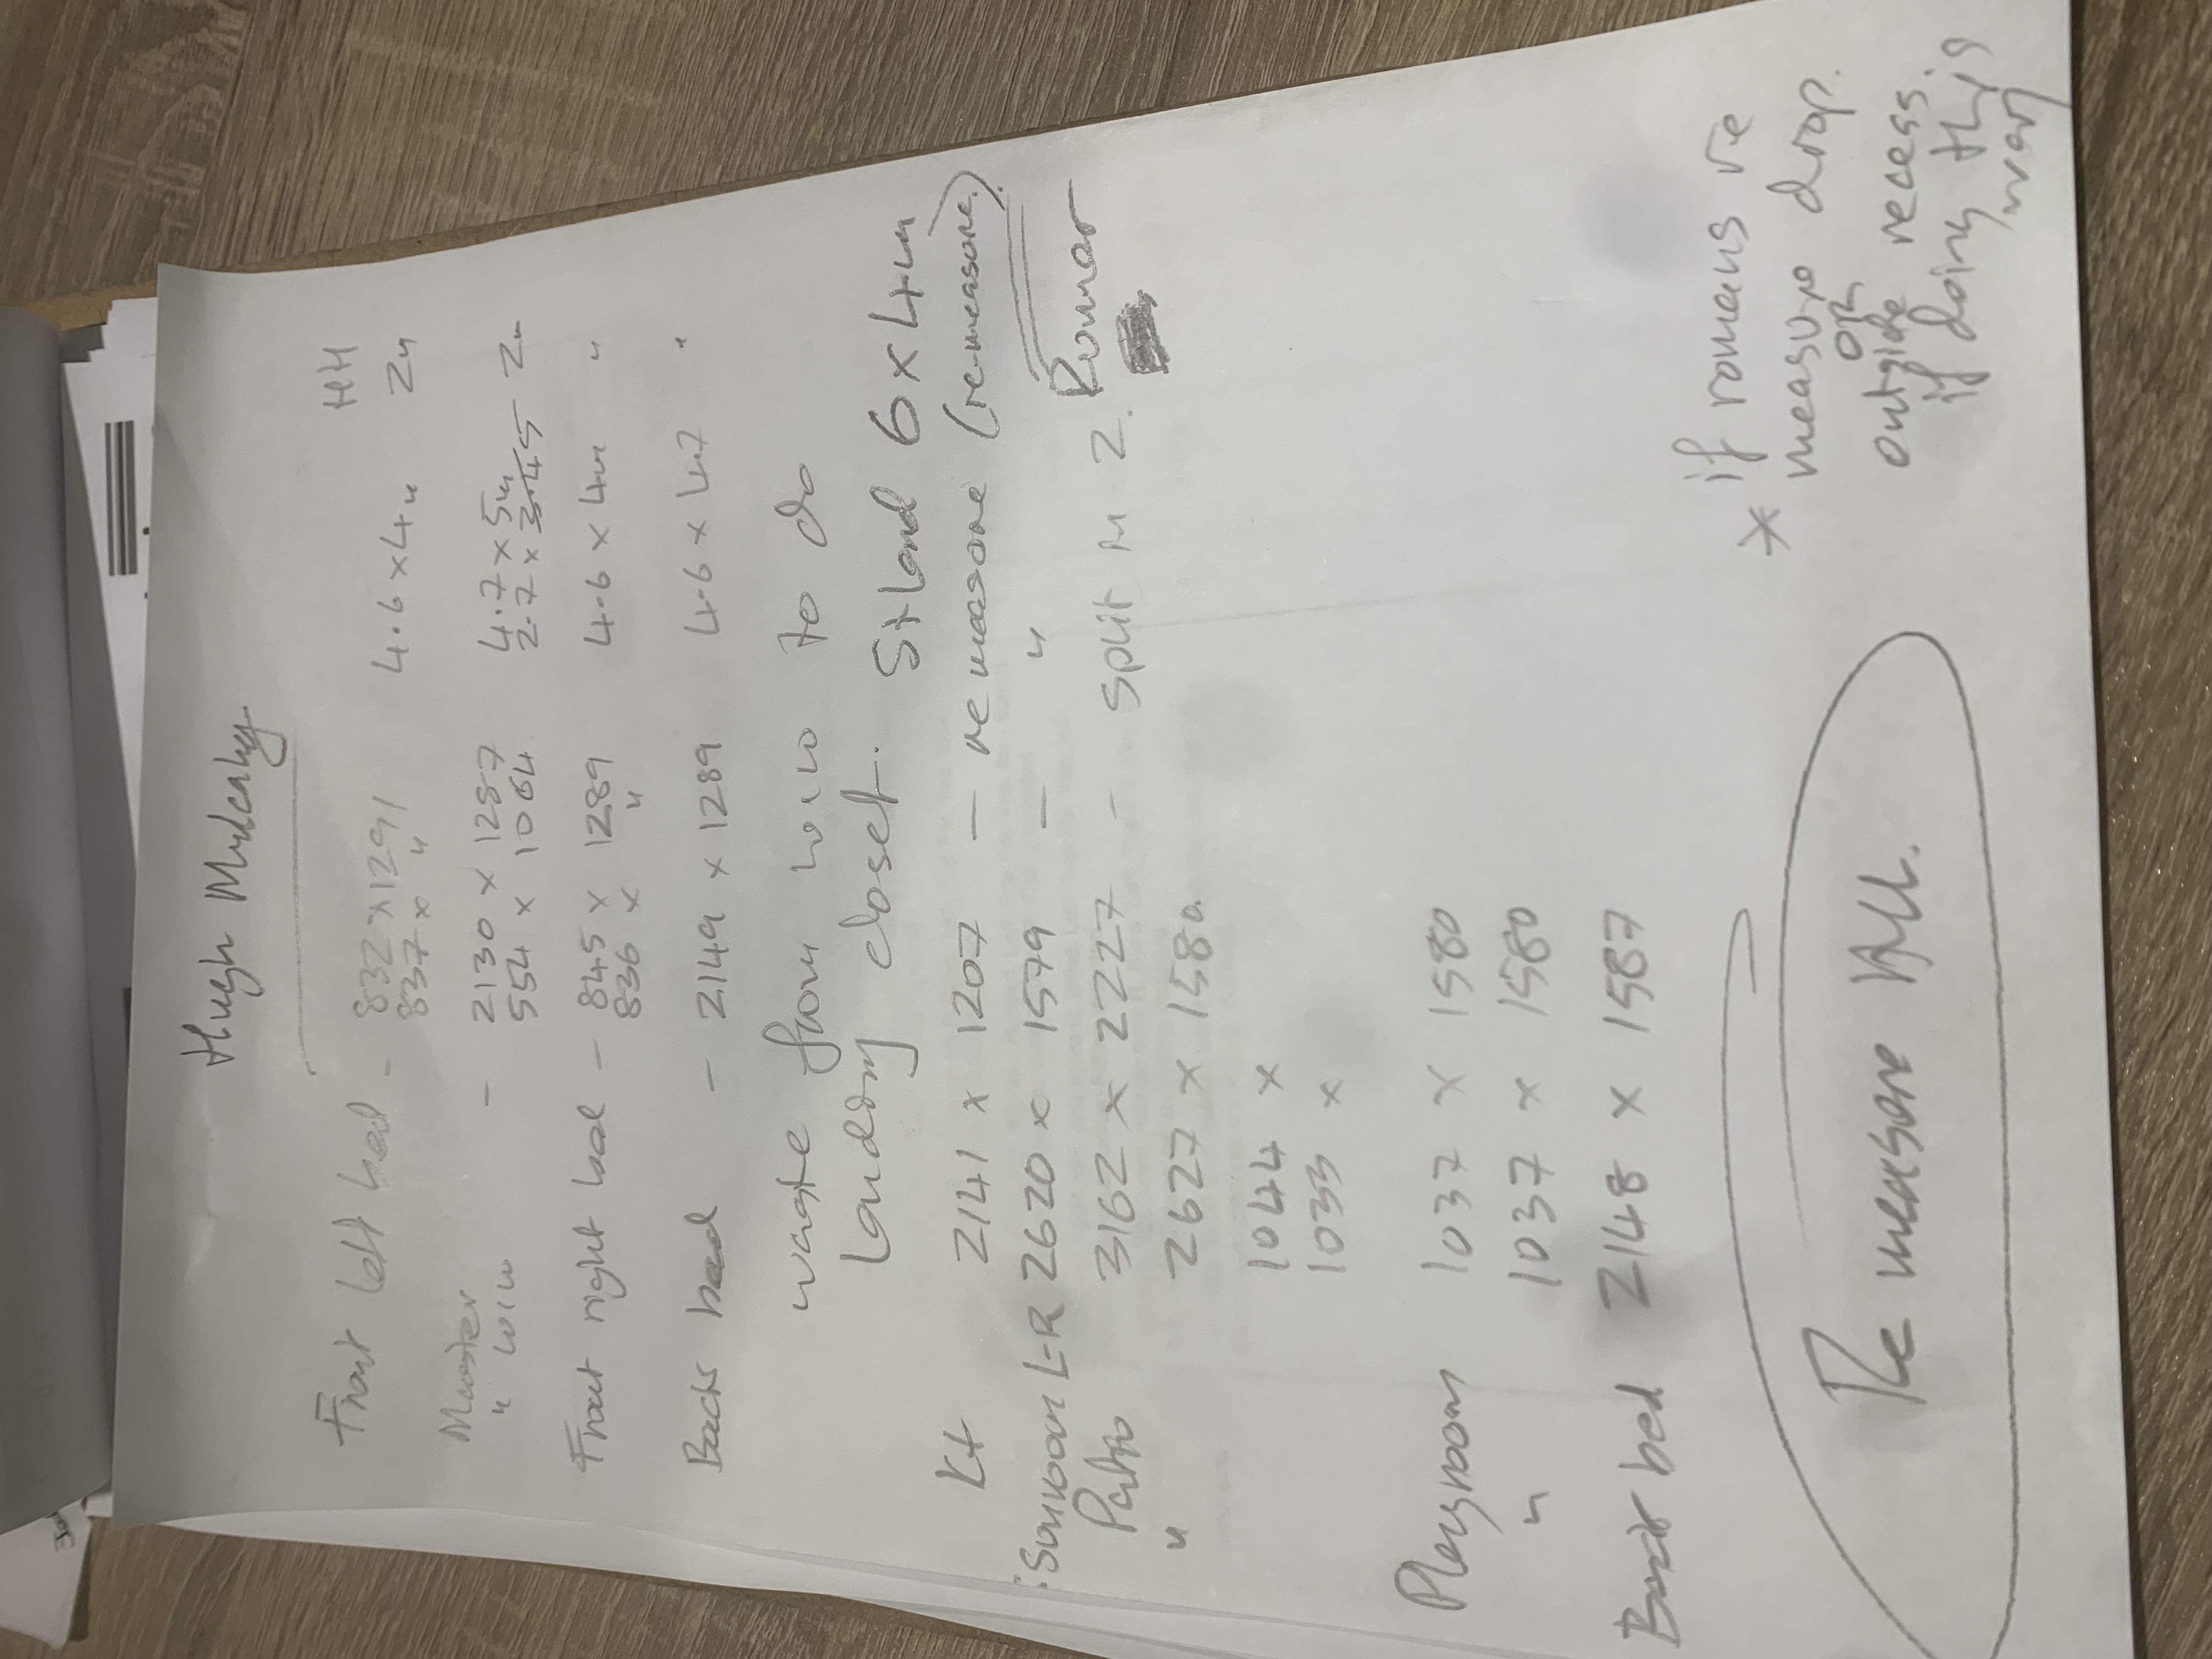 Hugh Mulcahy
HH
Front left bed - 832 x 1291 4.6 x 4m 2m
837 x "
Master - 2130 x 1287 4.7 x 5m
" win 554 x 1064 2.7 x 3.45 2m
Front right bed - 845 x 1289 4.6 x 4m "
836 x "
Back bed - 2149 x 1289 4.6 x 4.7 "
waste from win to do
landing closet. St land 6 x 4m
Kt 2141 x 1207 - remeasore (remeasore)
Sunroom L-R 2620 x 1579 - "
Patio 3162 x 2227 - split in 2. Roman
" 2627 x 1580
1044 x
1033 x
Playroom 1037 x 1580
" 1037 x 1580
Back bed 2148 x 1587
* if romans re
measure drop.
or
outside recess.
if doing this
way
Re measore All.